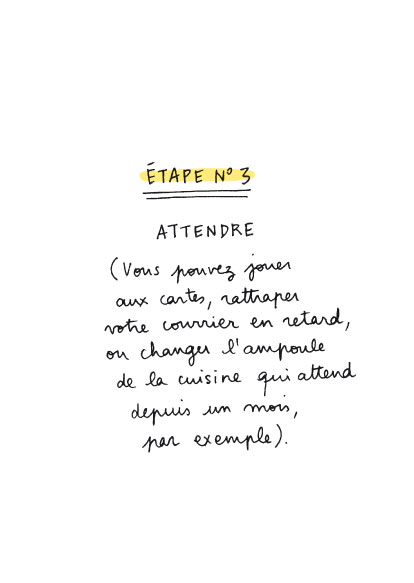 ÉTAPE N° 3
ATTENDRE
(Vous pouvez jouer
aux cartes, rattraper
votre courrier en retard,
ou changer l'ampoule
de la cuisine qui attend
depuis un mois,
par exemple).